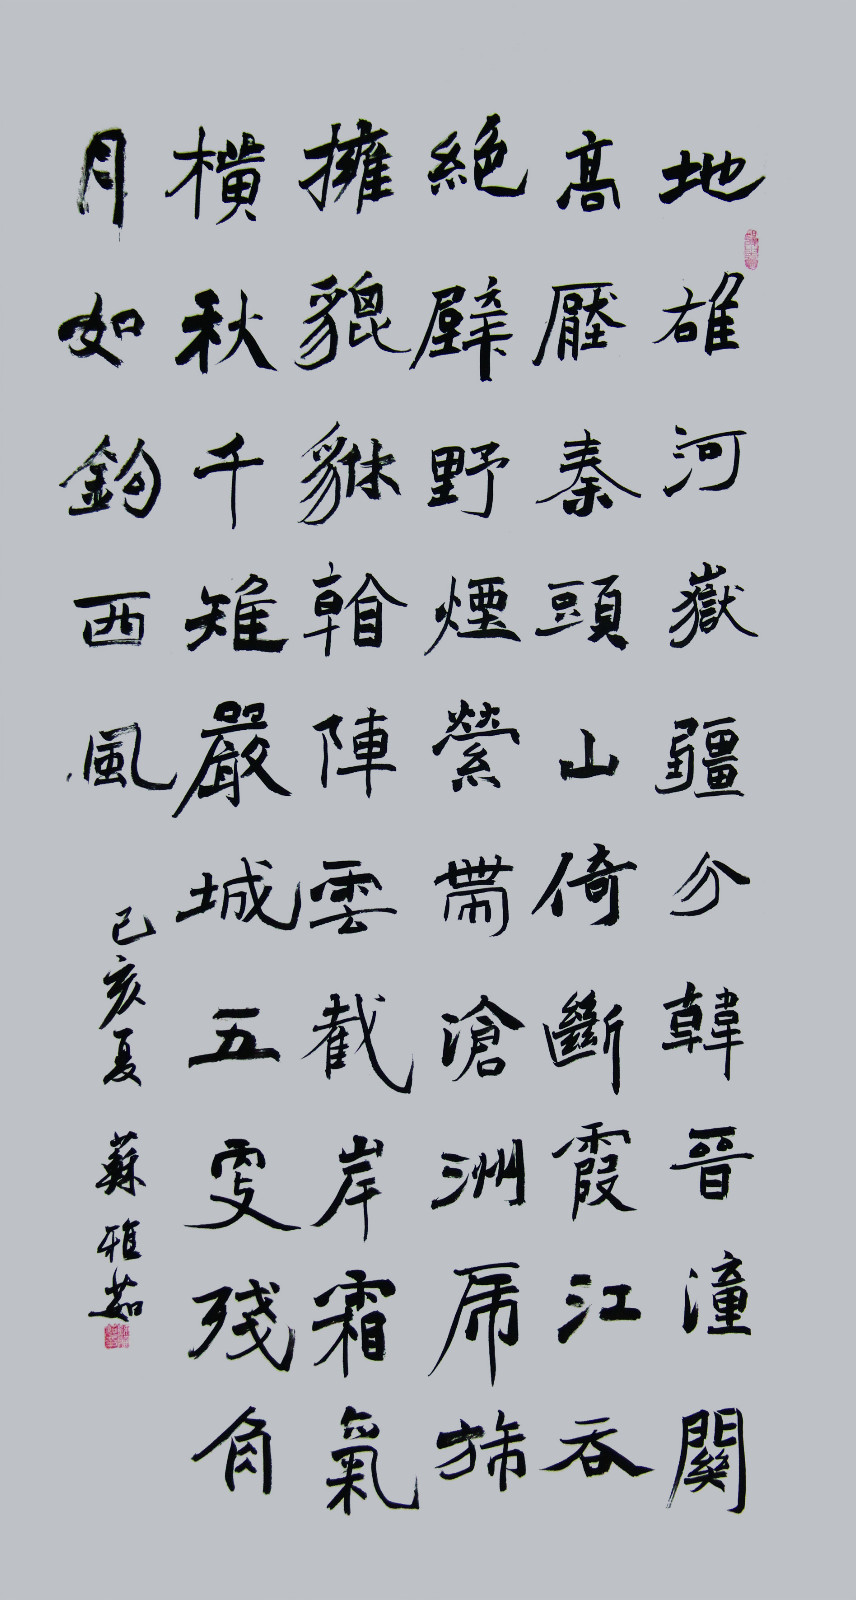 地雄河嶽疆分韓晉潼關
高壓秦頭山倚斷霞江吞
絕壁野煙縈帶滄洲虎旆
擁貔貅看陣雲截岸霜氣
橫秋千雉嚴城五更殘角
月如鉤西風
己亥夏 蘇雅茹